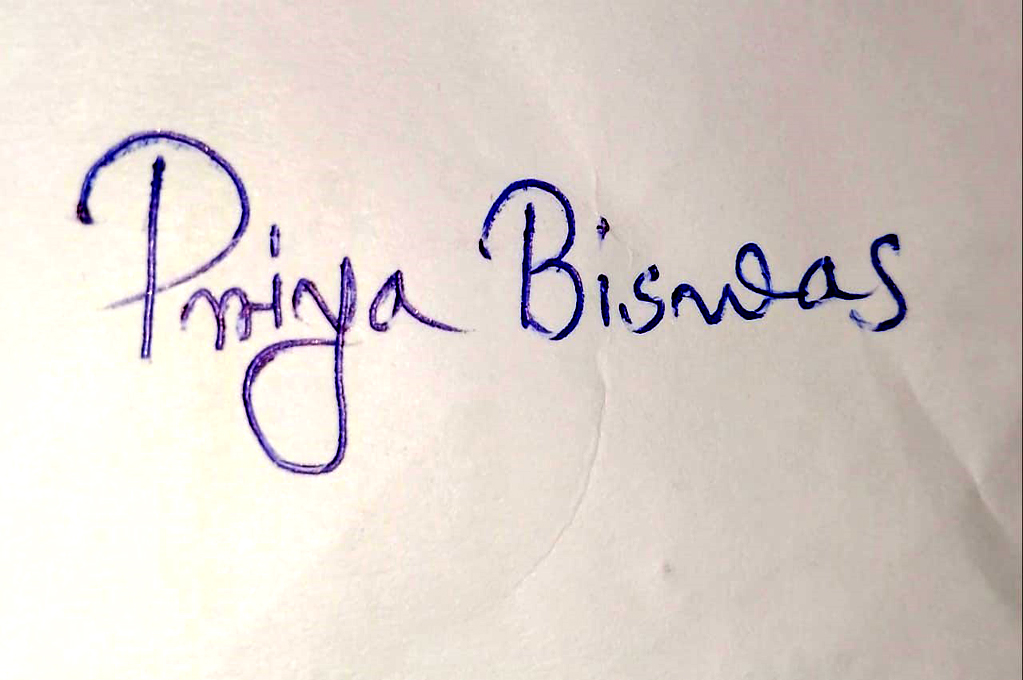 Priya Biswas